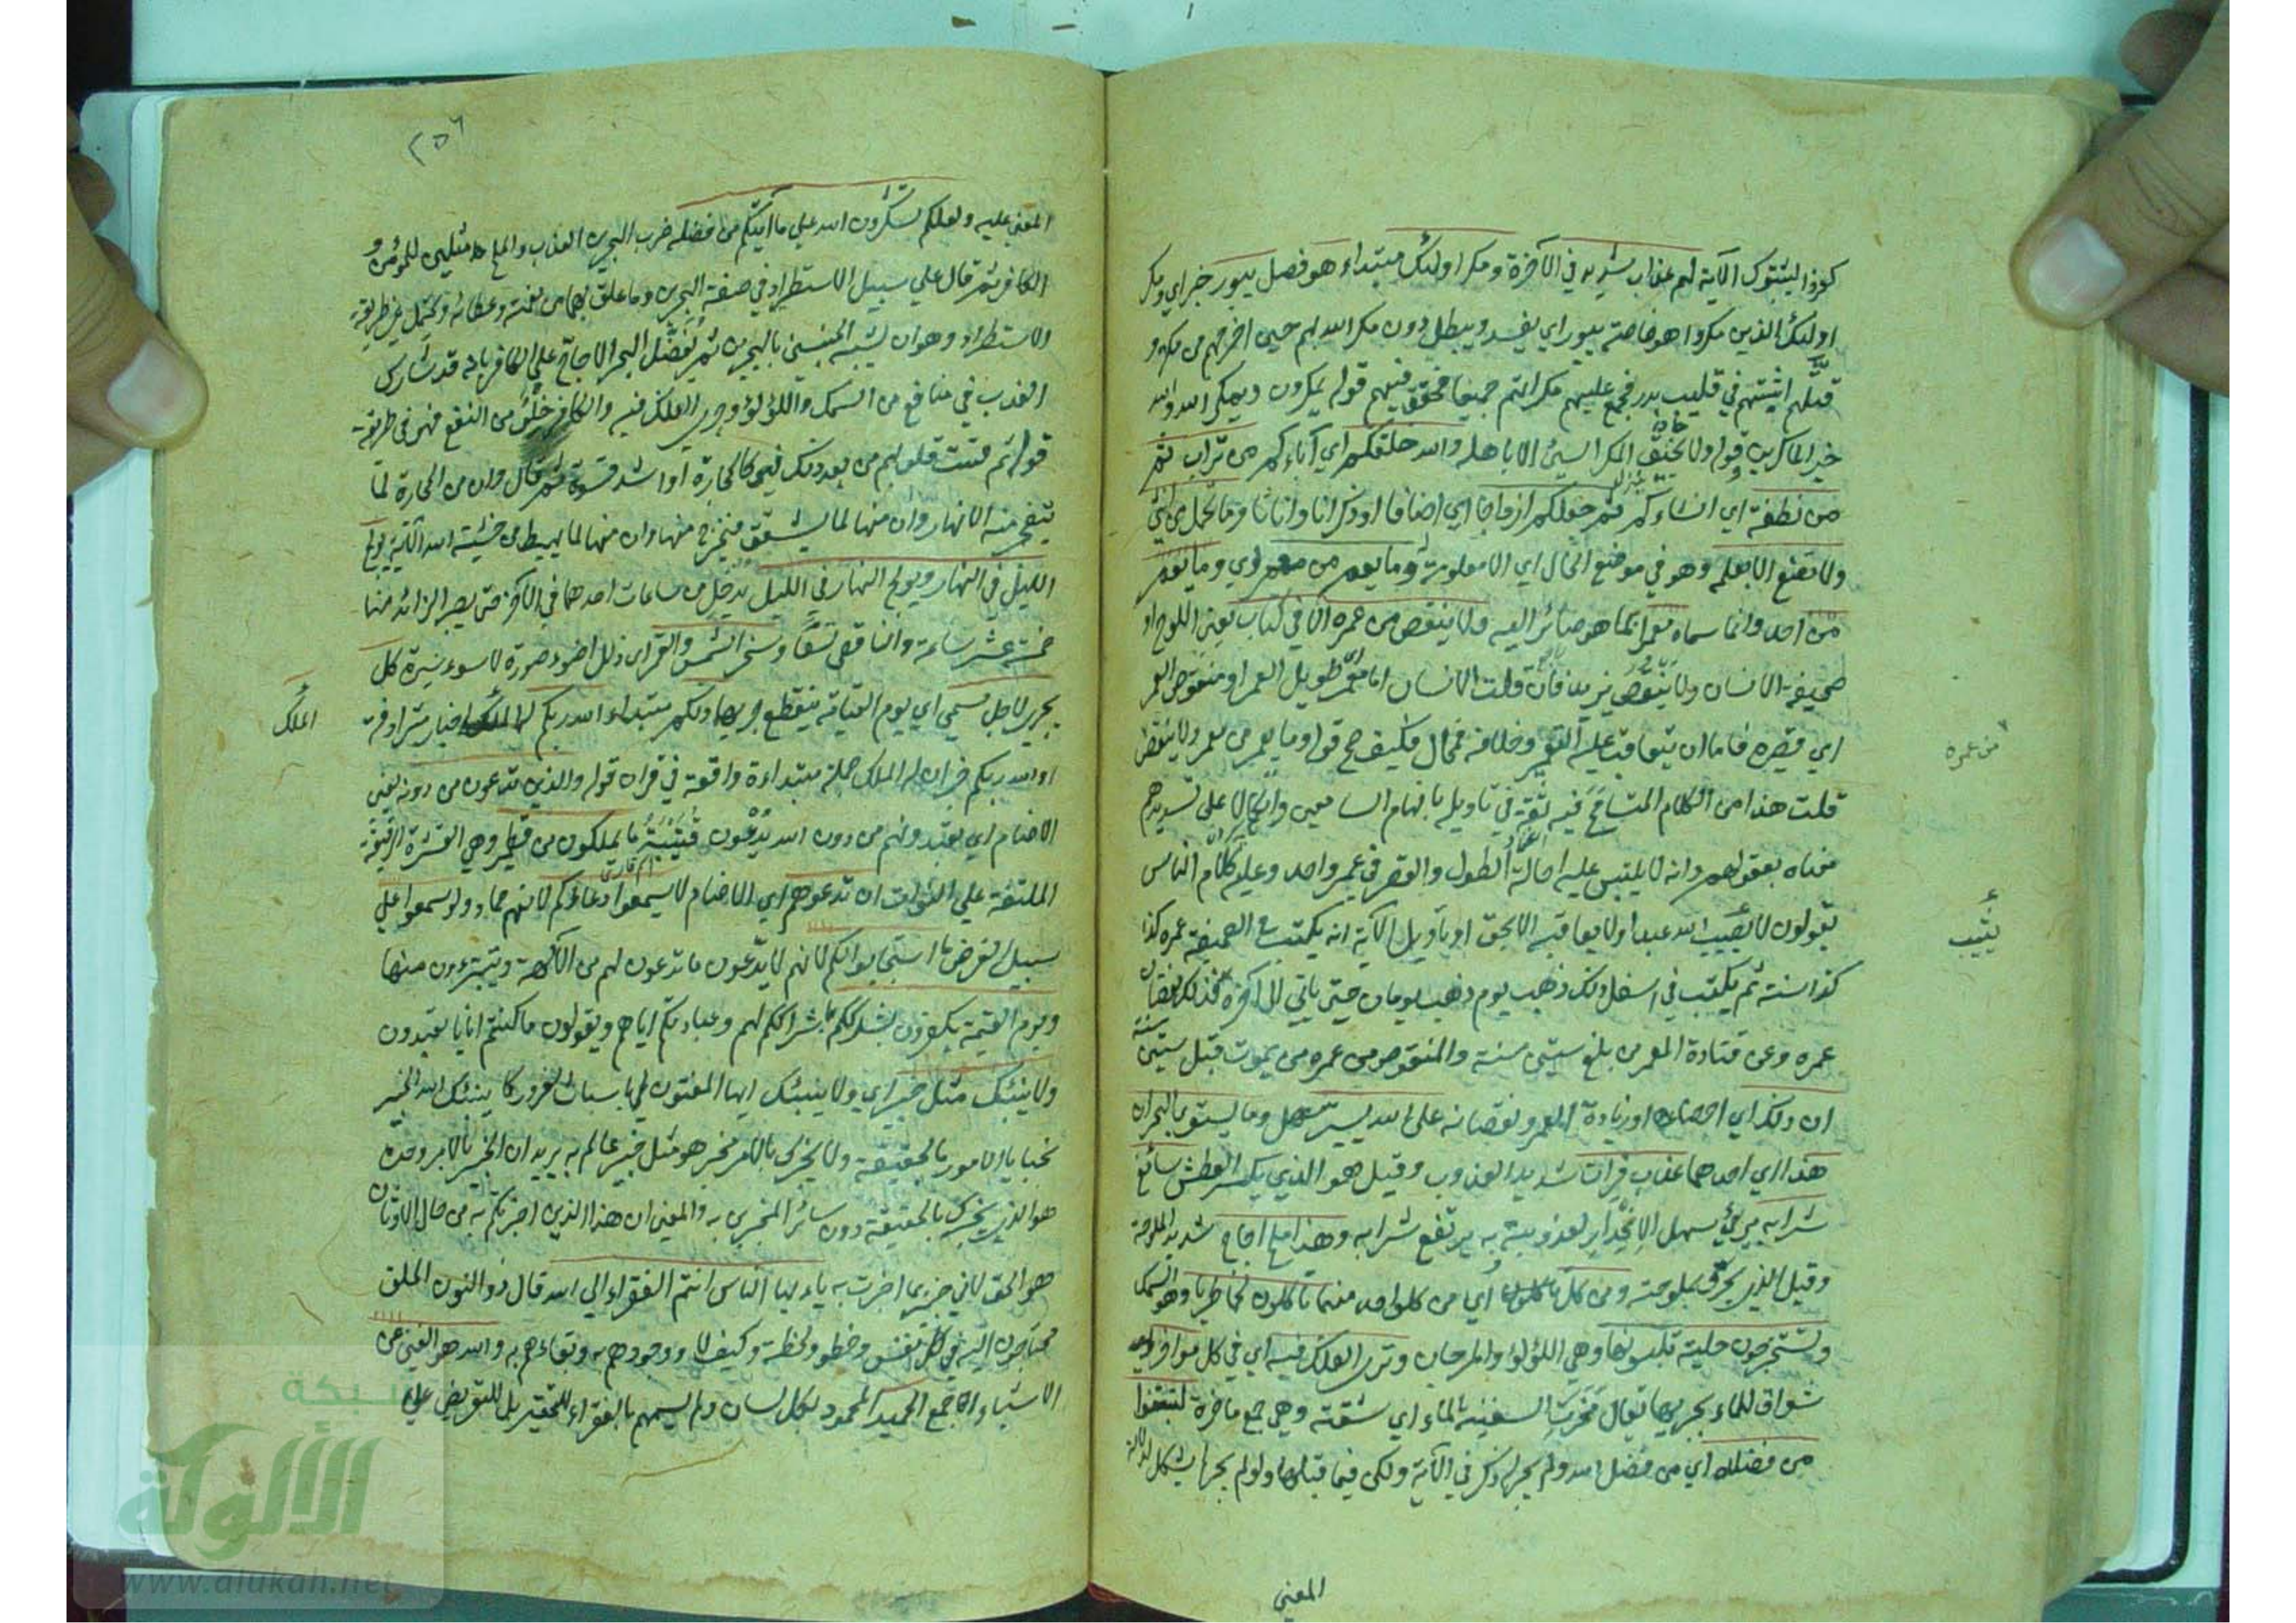 كفروا ليثبتوك الآية لهم عذاب شديد في الآخرة ومكر اولئك مبتداء هو فصل يبور خبر اي ومكر
اولئك الذين مكروا هو خاصة يبور اي يفسد ويبطل دون مكر الله بهم حين اخرجهم من مكة و
قتلهم اثبتهم في قليب بدر فجمع عليهم مكراتهم جميعا فحقق فيهم قوله يمكرون ويمكر الله والله
خير الماكرين وقوله ولا يحيق المكر السيئ الا باهله والله خلقكم اي آباءكم من تراب ثم
من نطفة اي انشاءكم ثم جعلكم ازواجا اي اصنافا او ذكرانا واناثا وما تحمل من انثى
ولا تضع الا بعلمه وهو في موضع الحال اي الا معلومة وما يعمر من معمر اي وما يعمر
من احد وانما سماه معمرا بما هو صائر اليه ولا ينقص من عمره الا في كتاب يعني اللوح او
صحيفة الانسان ولا ينقص يزيد فان قلت الانسان اما معمر طويل العمر او منقوص العمر
اي قصيره فاما ان يتعاقب عليه التعمير وخلافه فمحال فكيف صح قوله وما يعمر من معمر ولا ينقص
من عمره
قلت هذا من الكلام المتسامح فيه ثقة في تاويله بافهام السامعين واتكالا على تسديدهم
معناه بعقولهم وانه لا يلتبس عليه احالة الطول والقصر في عمر واحد وعليه كلام الناس
يقولون لا يثيب الله عبدا ولا يعاقبه الا بحق او تأويل الآية انه يكتب في الصحيفة عمره كذا
يثيب
كذا سنة ثم يكتب في اسفل ذلك ذهب يوم ذهب يومان حتى ياتي الى آخره فذلك نقصان
عمره وعن قتادة المعمر من بلغ ستين سنة والمنقوص من عمره من يموت قبل ستين سنة
ان ذلك اي احصاءه او زيادة العمر ونقصانه على الله يسير سهل وما يستوي البحران
هذا اي احدهما عذب فرات شديد العذوبة وقيل هو الذي يكسر العطش سائغ
شرابه مريئ سهل الانحدار لعذوبته به يرتفع شرابه وهذا ملح اجاج شديد الملوحة
وقيل الذي يحرق بملوحته ومن كل تأكلون اي من كل واحد منهما تاكلون لحما طريا وهو السمك
وتستخرجون حلية تلبسونها وهي اللؤلؤ والمرجان وترى الفلك فيه اي في كل مواخر
شواق للماء بجريها يقال مخرت السفينة الماء اي شقته وهي جمع ماخرة لتبتغوا
من فضله اي من فضل الله ولم يجر له ذكر في الآية ولكن فيما قبلها ولو لم يجر لم يشكل لدلالة
المعنى
٢٥٦
المعنى عليه ولعلكم تشكرون الله على ما آتيكم من فضله ضرب البحرين العذب والملح مثلين للمؤمن و
الكافر ثم قال على سبيل الاستطراد في صفة البحرين وما علق بهما من نعمته وعطائه ويحتمل غير طريقة
الاستطراد وهو ان يشبه الجنسين بالبحرين ثم يفضل البحر الاجاج على الكافر بانه قد شارك
العذب في منافع من السمك واللؤلؤ وجري الفلك فيه والكافر خلو من النفع فهو في طريقة
قوله ثم قست قلوبهم من بعد ذلك فهي كالحجارة او اشد قسوة ثم قال وان من الحجارة لما
يتفجر منه الانهار وان منها لما يشقق فيخرج منها وان منها لما يهبط من خشية الله الآية يولج
الليل في النهار ويولج النهار في الليل يدخل من ساعات احدهما في الآخر حتى يصير الزائد منها
خمس عشر ساعة والناقص تسعا وسخر الشمس والقمر اي ذلل اضوء صورة لاسوء سيرة كل
يجري لاجل مسمى اي يوم القيامة ينقطع جريها ذلكم مبتداء الله ربكم له الملك اخبار مترادفة
الملك
او الله ربكم خبران له الملك جملة مبتداءة واقعة في قران قوله والذين تدعون من دونه يعني
الاصنام اي يعبدونهم من دون الله يدعون قتيبة ما يملكون من قطمير وهي القشرة الرقيقة
الملتفة على النواة ان تدعوهم اي الاصنام لا يسمعوا دعاءكم لانهم جماد ولو سمعوا على
سبيل الفرض ما استجابوا لكم لانهم لا يدعون ما تدعون لهم من الآلهة ويتبرءون منها
ويوم القيمة يكفرون بشرككم باشراككم لهم وعبادتكم اياهم ويقولون ما كنتم ايانا تعبدون
ولا ينبئك مثل خبير اي ولا ينبئك ايها المفتون باسباب الغرور كما ينبئك الله الخبير
بخبايا الامور بالحقيقة ولا يخبرك بالامر مخبر هو مثل خبير عالم به يريد ان الخبير بالامر وحده
هو الذي يخبرك بالحقيقة دون سائر المخبرين به والمعنى ان هذا الذي اخبرتكم به من حال الاوثان
هو الحق لاني خبير بما اخبرت به ياءيها الناس انتم الفقراء الى الله قال ذو النون الخلق
محتاجون اليه في كل نفس وخطوة ولحظة وكيف لا ووجودهم به وبقاءهم به والله هو الغني عن
الاشياء اجمع الحميد المحمود بكل لسان ولم يسمهم بالفقراء للتحقير بل للتعريض على
شبكة
الألوكة
www.alukah.net